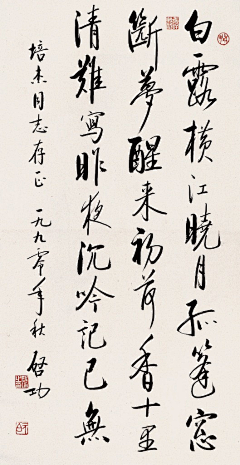 白露横江晓月孤篷窗
断梦醒来初荷香十里
清难写昨夜沉吟记已无
培杰同志存正 一九九零年秋 启功